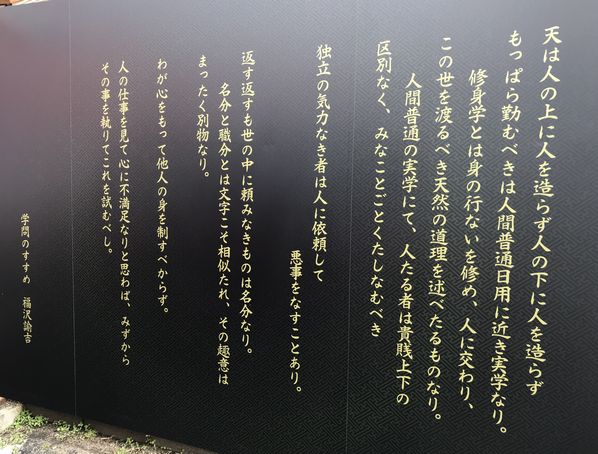 天は人の上に人を造らず人の下に人を造らず
もっぱら勤むべきは人間普通日用に近き実学なり。
修身学とは身の行ないを修め、人に交わり、
この世を渡るべき天然の道理を述べたるものなり。
人間普通の実学にて、人たる者は貴賤上下の
区別なく、みなことごとくたしなむべき
独立の気力なき者は人に依頼して
悪事をなすことあり。
返す返すも世の中に頼みなきものは名分なり。
名分と職分とは文字こそ相似たれ、その趣意は
まったく別物なり。
わが心をもって他人の身を制すべからず。
人の仕事を見て心に不満足なりと思わば、みずから
その事を執りてこれを試むべし。
学問のすすめ 福沢諭吉